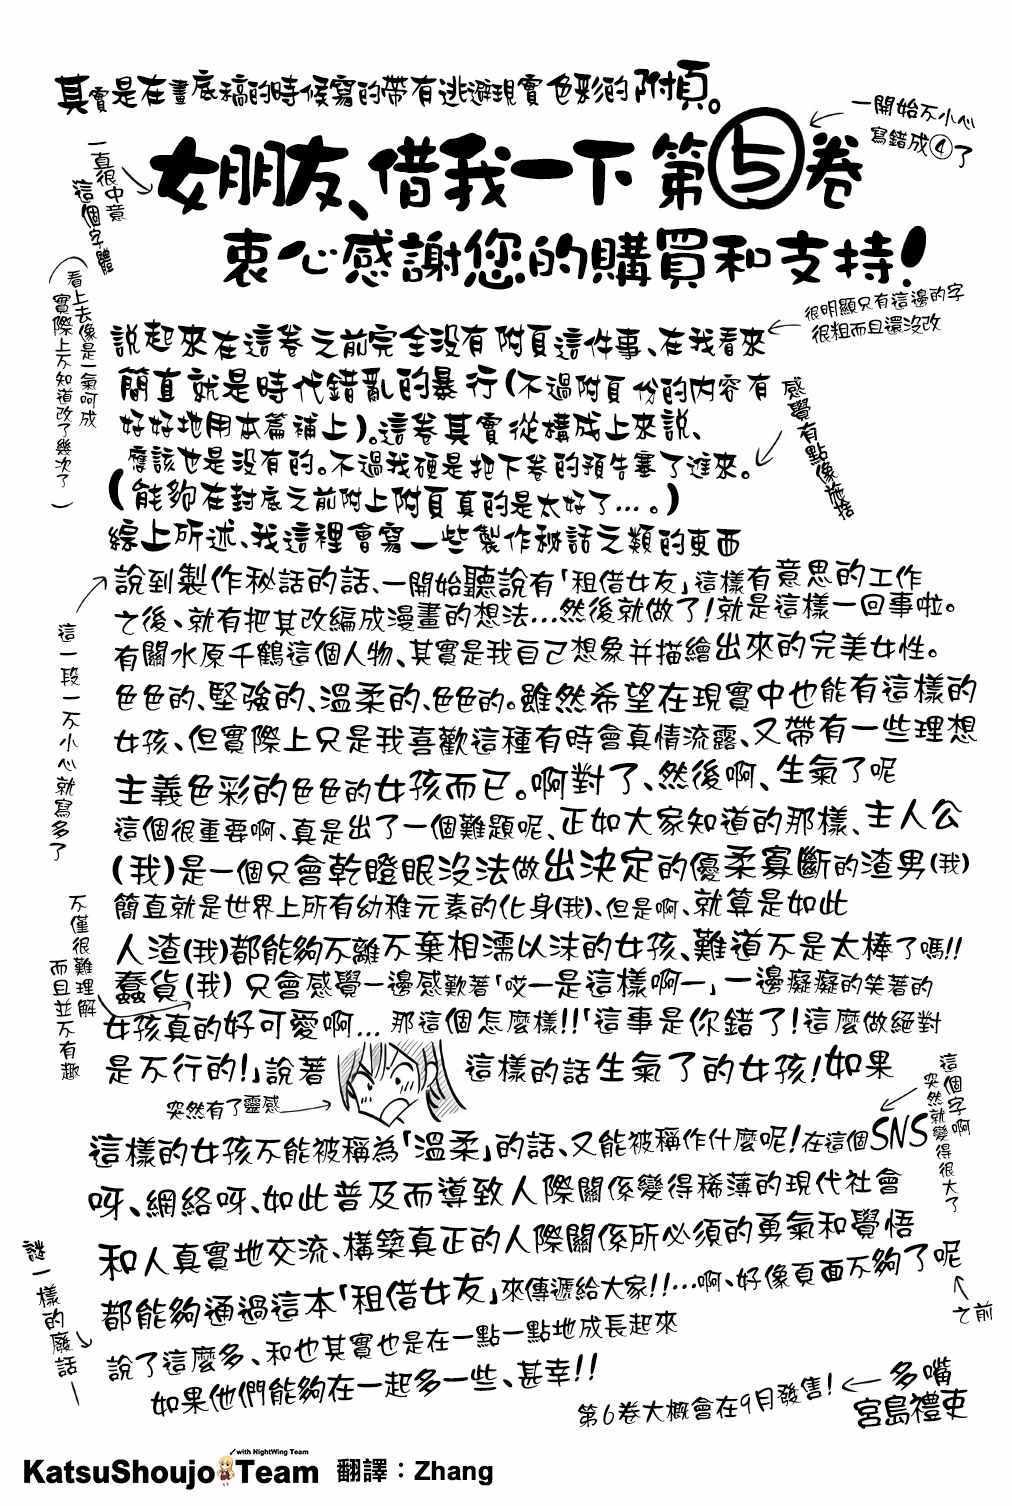 其實是在畫底稿的時候寫的帶有逃避現實色彩的附頁。
一開始不小心
寫錯成④了
一直很中意
這個字體
女朋友、借我一下 第⑤卷
衷心感謝您的購買和支持!
(看上去像是一氣呵成
實際上不知道改了幾次了)
很明顯只有這邊的字
很粗而且還沒改
說起來在這卷之前完全沒有附頁這件事、在我看來
簡直就是時代錯亂的暴行(不過附頁份的內容有
好好地用本篇補上)。這卷其實從構成上來說、
應該也是沒有的。不過我硬是把下卷的預告塞了進來。
(能夠在封底之前附上附頁真的是太好了…。)
感覺有點像施捨
綜上所述、我這裡會寫一些製作秘話之類的東西
說到製作秘話的話、一開始聽說有「租借女友」這樣有意思的工作
之後、就有把其改編成漫畫的想法…然後就做了!就是這樣一回事啦。
有關水原千鶴這個人物、其實是我自己想象并描繪出來的完美女性。
色色的、堅強的、溫柔的、色色的。雖然希望在現實中也能有這樣的
女孩、但實際上只是我喜歡這種有時會真情流露、又帶有一些理想
主義色彩的色色的女孩而已。啊對了、然後啊、生氣了呢
這一段一不小心就寫多了
這個很重要啊、真是出了一個難題呢、正如大家知道的那樣、主人公
(我)是一個只會乾瞪眼沒法做出決定的優柔寡斷的渣男(我)
簡直就是世界上所有幼稚元素的化身(我)、但是啊、就算是如此
人渣(我)都能夠不離不棄相濡以沫的女孩、難道不是太棒了嗎!!
蠢貨(我)只會感覺一邊感歎著「哎一是這樣啊一」一邊癡癡的笑著的
不僅很難理解
而且並不有趣
女孩真的好可愛啊… 那這個怎麼樣!!「這事是你錯了!這麼做絕對
是不行的!」說著 這樣的話生氣了的女孩!如果
突然有了靈感
這個字啊
突然就變得很大了
這樣的女孩不能被稱為「溫柔」的話、又能被稱作什麼呢!在這個SNS
呀、網絡呀、如此普及而導致人際關係變得稀薄的現代社會
和人真實地交流、構築真正的人際關係所必須的勇氣和覺悟
都能夠通過這本「租借女友」來傳遞給大家!!…啊、好像頁面不夠了呢
之前
謎一樣的廢話一
說了這麼多、和也其實也是在一點一點地成長起來
如果他們能夠在一起多一些、甚幸!!
第6卷大概會在9月發售!
多嘴
宮島禮吏
with NightWing Team
KatsuShoujo Team 翻譯：Zhang